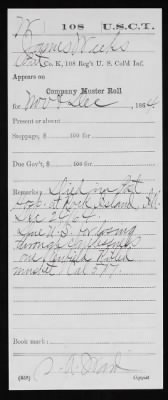 W | 108 | U.S.C.T.
James Weeks
Co. K, 108 Reg't U. S. Col'd Inf.
Appears on
Company Muster Roll
for Nov & Dec, 1864
Present or absent
Stoppage, $ 100 for
Due Gov't, $ 100 for
Remarks: Died in Post
Hosp. at Rock Island, Ill.
Dec 21/64.
Due U.S. for losing
through carelessness
one Enfield Rifled
musket Cal 577.
Book mark:
(358) Copyist.